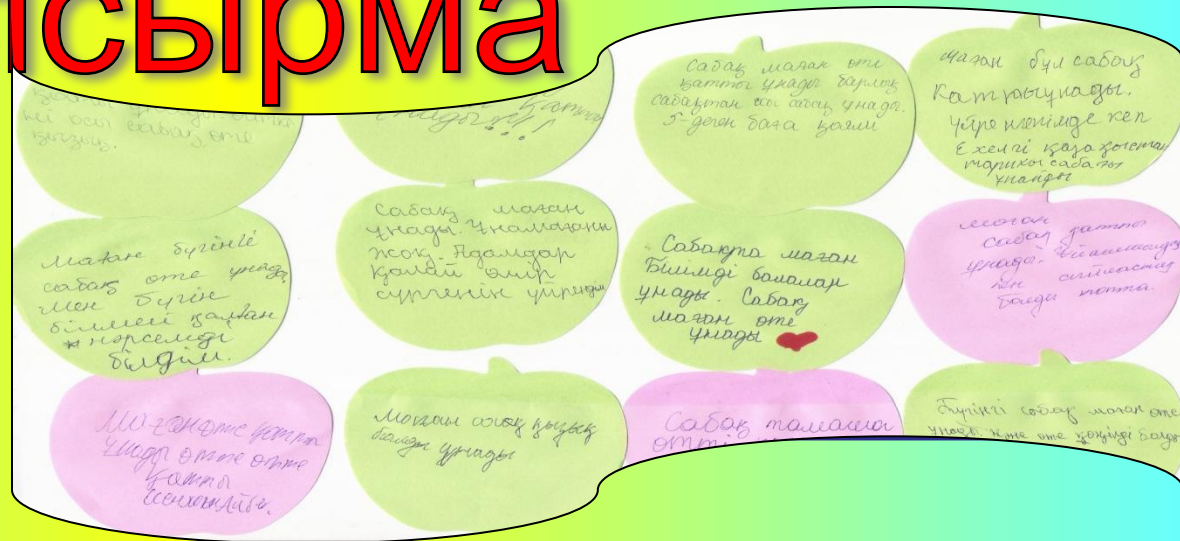 ысырма
осы сабақ өте
қызық.
қатты
ұнады!!!
Сабақ маған өте
қатты ұнады барлық
сабақтан осы сабақ ұнады.
5-деген баға қоям
Маған бұл сабақ
Қатты ұнады.
Үйренгенімде көп
Ежелгі қазақстан
тарихы сабағы
ұнайды
Маған бүгінгі
сабақ өте ұнады
Мен бүгін
білмей қалған
нәрсемді
білдім.
Сабақ маған
ұнады. Ұнамағаны
жоқ. Адамдар
қалай өмір
сүргенін үйрендім
Сабақта маған
Білімді балалар
ұнады. Сабақ
маған өте
ұнады
маған
сабақ қатты
ұнады.
болды топта.
Маған өте қатты
ұнады өтте өтте
Қатты
Маған сабақ қызық
болды ұнады
Сабақ тамаша
өтті
Бүгінгі сабақ маған өте
ұнады және өте көңілді болды